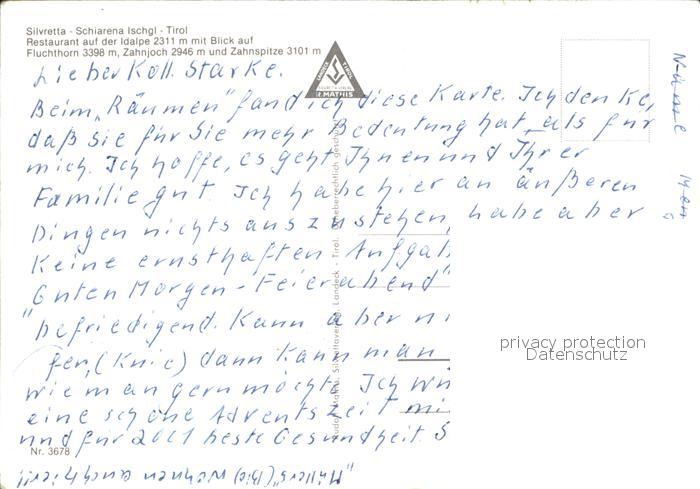 Silvretta - Schiarena Ischgl - Tirol
Restaurant auf der Idalpe 2311 m mit Blick auf
Fluchthorn 3398 m, Zahnjoch 2946 m und Zahnspitze 3101 m
Lieber Koll. Starke.
Beim „Räumen" fand ich diese Karte. Ich denke,
daß sie für Sie mehr Bedeutung hat, als für
mich. Ich hoffe, es geht Ihnen und Ihrer
Familie gut. Ich habe hier an äußeren
Dingen nichts auszustehen, habe aber
keine ernsthaften Aufgab
"Guten Morgen - Feierabend"
befriedigend. Kann aber ni
fen, (Knie) dann kann man
wie man gern möchte. Ich wü
eine schöne Adventszeit mi
und für 2001 beste Gesundheit. S
Nr. 3678
"Müllers" (Bio) wohnen auch hier!!
privacy protection
Datenschutz